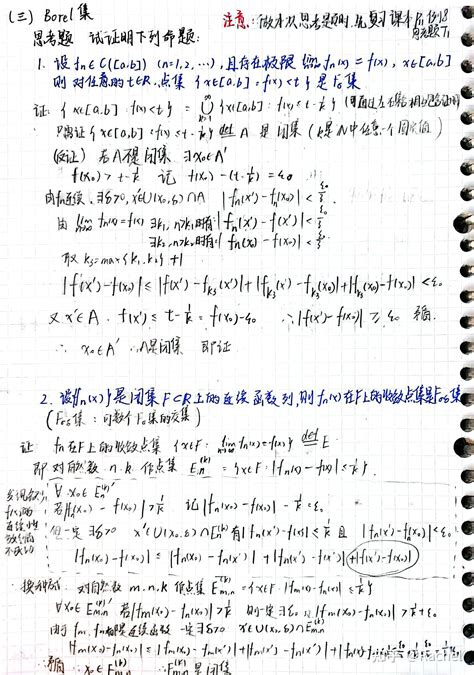 (三) Borel集
注意: 做本次思考题时, 先复习课本P 例18 思考题T1
思考题 试证明下列命题:
1. 设 fn∈C([a,b]) (n=1,2,…), 且存在极限 lim fn(x) = f(x), x∈[a,b]
则 对任意的 t∈R, 点集 {x∈[a,b] = f(x)<t} 是 Fσ集
证: {x∈[a,b]: f(x)<t} = ∪ {x∈[a,b]: f(x)≤t-1/k}
只需证 {x∈[a,b]: f(x)≤t-1/k} def A 是闭集 (k是N中任意一个固定值)
(反证) 若A不是闭集 ∃x0∈A'
f(x0) > t-1/k 记 f(x0)-(t-1/k)=ε0
由fn连续, ∃δ>0, x'∈U(x0,δ)∩A |fn(x')-fn(x0)|<
由 lim fn(x)=f(x) ∃k1, n>k1时有 |fn(x')-f(x')|<
∃k2, n>k2时有 |fn(x0)-f(x0)|<
取 k3=max{k1,k2}+1
|f(x')-f(x0)| ≤ |f(x')-fk3(x')|+|fk3(x')-fk3(x0)|+|fk3(x0)-f(x0)|<ε0
又 x'∈A, f(x')≤t-1/k=f(x0)-ε0 ∴|f(x')-f(x0)|≥ε0 矛盾.
∴ x0∈A' ∴A是闭集 即证
2. 设{fn(x)}是闭集F⊂R上的连续函数列, 则fn(x)在F上的收敛点集是Fσδ集
(Fσδ集: 可数个Fσ集的交集)
证 fn在F上的收敛点集 {x∈F: lim fn(x)=f(x)} def E
即 对自然数 n.k 作点集 En(k) = {x∈F: |fn(x)-f(x)|≤1/k}
∀x0∈En(k)'
若|fn(x0)-f(x0)|>1/k 记|fn(x0)-f(x0)|-1/k=ε0
但一定∃δ>0 x'∈U(x0,δ)∩En(k) 有|fn(x')-f(x')|≤1/k 且 |fn(x')-fn(x0)|<ε0
|fn(x0)-f(x0)|≤|fn(x0)-fn(x')|+|fn(x')-f(x')|+|f(x')-f(x0)|
换种方式 对自然数 m.n.k 作点集 Em,n(k)={x∈F: |fm(x)-fn(x)|≤1/k}
∀x0∈Em,n(k)' 若|fm(x0)-fn(x0)|>1/k 则一定∃ε0, |fm(x0)-fn(x0)|>1/k+ε0
由于fm, fn都是连续函数 一定∃δ>0 x'∈U(x0,δ)∩Em,n(k)
|fm(x0)-fn(x0)|≤|fm(x0)-fm(x')|+|fm(x')-fn(x')|+
∴矛盾 ∴x0∈Em,n(k) ∴Em,n(k)是闭集